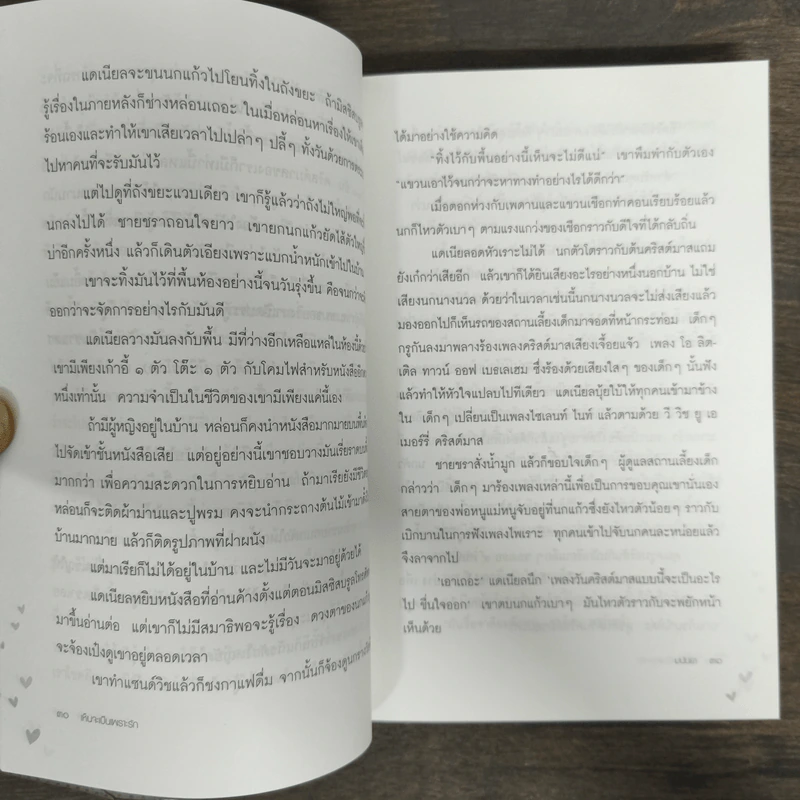 แดเนียลจะขนนกแก้วไปโยนทิ้งในถังขยะ ถ้ามิสซิส
รู้เรื่องในภายหลังก็ช่างหล่อนเถอะ ในเมื่อหล่อนหาเรื่องให้เขา
ร้อนเองและทำให้เขาเสียเวลาไปเปล่าๆ ปลี้ๆ ทั้งวันด้วยการ
ไปหาคนที่จะรับมันไว้
แต่ไปดูที่ถังขยะแวบเดียว เขาก็รู้แล้วว่าถังไม่ใหญ่พอที่
นกลงไปได้ ชายชราถอนใจยาว เขายกนกแก้วยัดไส้ตัวใหญ่
บ่าอีกครั้งหนึ่ง แล้วก็เดินตัวเอียงเพราะแบกน้ำหนักเข้าไปในบ้าน
เขาจะทิ้งมันไว้ที่พื้นห้องอย่างนี้จนวันรุ่งขึ้น คือจนกว่าจะ
ออกว่าจะจัดการอย่างไรกับมันดี
แดเนียลวางมันลงกับพื้น มีที่ว่างอีกเหลือแหลในห้องนี้
เขามีเพียงเก้าอี้ ๑ ตัว โต๊ะ ๑ ตัว กับโคมไฟสำหรับหนังสืออีก
หนึ่งเท่านั้น ความจำเป็นในชีวิตของเขามีเพียงแค่นี้เอง
ถ้ามีผู้หญิงอยู่ในบ้าน หล่อนก็คงนำหนังสือมากมายบนพื้น
ไปจัดเข้าชั้นหนังสือเสีย แต่อยู่อย่างนี้เขาชอบวางมันเรี่ยราด
มากกว่า เพื่อความสะดวกในการหยิบอ่าน ถ้ามาเรียยังมีชีวิต
หล่อนก็จะติดผ้าม่านและปูพรม คงจะนำกระถางต้นไม้เข้ามา
บ้านมากมาย แล้วก็ติดรูปภาพที่ฝาผนัง
แต่มาเรียก็ไม่ได้อยู่ในบ้าน และไม่มีวันจะมาอยู่ด้วยได้
แดเนียลหยิบหนังสือที่อ่านค้างตั้งแต่ตอนมิสซิสบรูล
มาขึ้นอ่านต่อ แต่เขาก็ไม่มีสมาธิพอจะรู้เรื่อง ดวงตาของนก
จะจ้องเป๋งดูเขาอยู่ตลอดเวลา
เขาทำแซนด์วิชแล้วก็ชงกาแฟดื่ม จากนั้นก็จ้องดูนก
๓๐ เห็นจะเป็นเพราะรัก
ได้มาอย่างใช้ความคิด
“ทิ้งไว้กับพื้นอย่างนี้เห็นจะไม่ดีแน่” เขาพึมพำกับตัวเอง
“แขวนเอาไว้จนกว่าจะหาทางทำอย่างไรได้ดีกว่า”
เมื่อตอกห่วงกับเพดานและแขวนเชือกทำคอนเรียบร้อยแล้ว
นกก็ไหวตัวเบาๆ ตามแรงแกว่งของเชือกราวกับดีใจที่ได้กลับถิ่น
แดเนียลอดหัวเราะไม่ได้ นกตัวโตราวกับต้นคริสต์มาสแถม
ยังเก๋กว่าเสียอีก แล้วเขาก็ได้ยินเสียงอะไรอย่างหนึ่งนอกบ้าน ไม่ใช่
เสียงนกนางนวล ด้วยว่าในเวลาเช่นนี้นกนางนวลจะไม่ส่งเสียงแล้ว
มองออกไปก็เห็นรถของสถานเลี้ยงเด็กมาจอดที่หน้ากระท่อม เด็กๆ
กรูกันลงมาพลางร้องเพลงคริสต์มาสเสียงเจื้อยแจ้ว เพลง โอ ลิต-
เติล ทาวน์ ออฟ เบธเลเฮม ซึ่งร้องด้วยเสียงใสๆ ของเด็กๆ นั้นฟัง
แล้วทำให้หัวใจแปลบไปทีเดียว แดเนียลบุ้ยใบ้ให้ทุกคนเข้ามาข้าง
ใน เด็กๆ เปลี่ยนเป็นเพลงไซเลนท์ ไนท์ แล้วตามด้วย วี วิช ยู เอ
เมอร์รี่ คริสต์มาส
ชายชราสั่งน้ำมูก แล้วก็ขอบใจเด็กๆ ผู้ดูแลสถานเลี้ยงเด็ก
กล่าวว่า เด็กๆ มาร้องเพลงเหล่านี้เพื่อเป็นการขอบคุณเขานั่นเอง
สายตาของพ่อหนูแม่หนูจับอยู่ที่นกแก้วซึ่งยังไหวตัวน้อยๆ ราวกับ
เบิกบานในการฟังเพลงไพเราะ ทุกคนเข้าไปจับนกคนละหน่อยแล้ว
จึงลาจากไป
‘เอาเถอะ’ แดเนียลนึก ‘เพลงวันคริสต์มาสแบบนี้จะเป็นอะไร
ไป ชื่นใจออก’ เขาตบนกแก้วเบาๆ มันไหวตัวราวกับจะพยักหน้า
เห็นด้วย